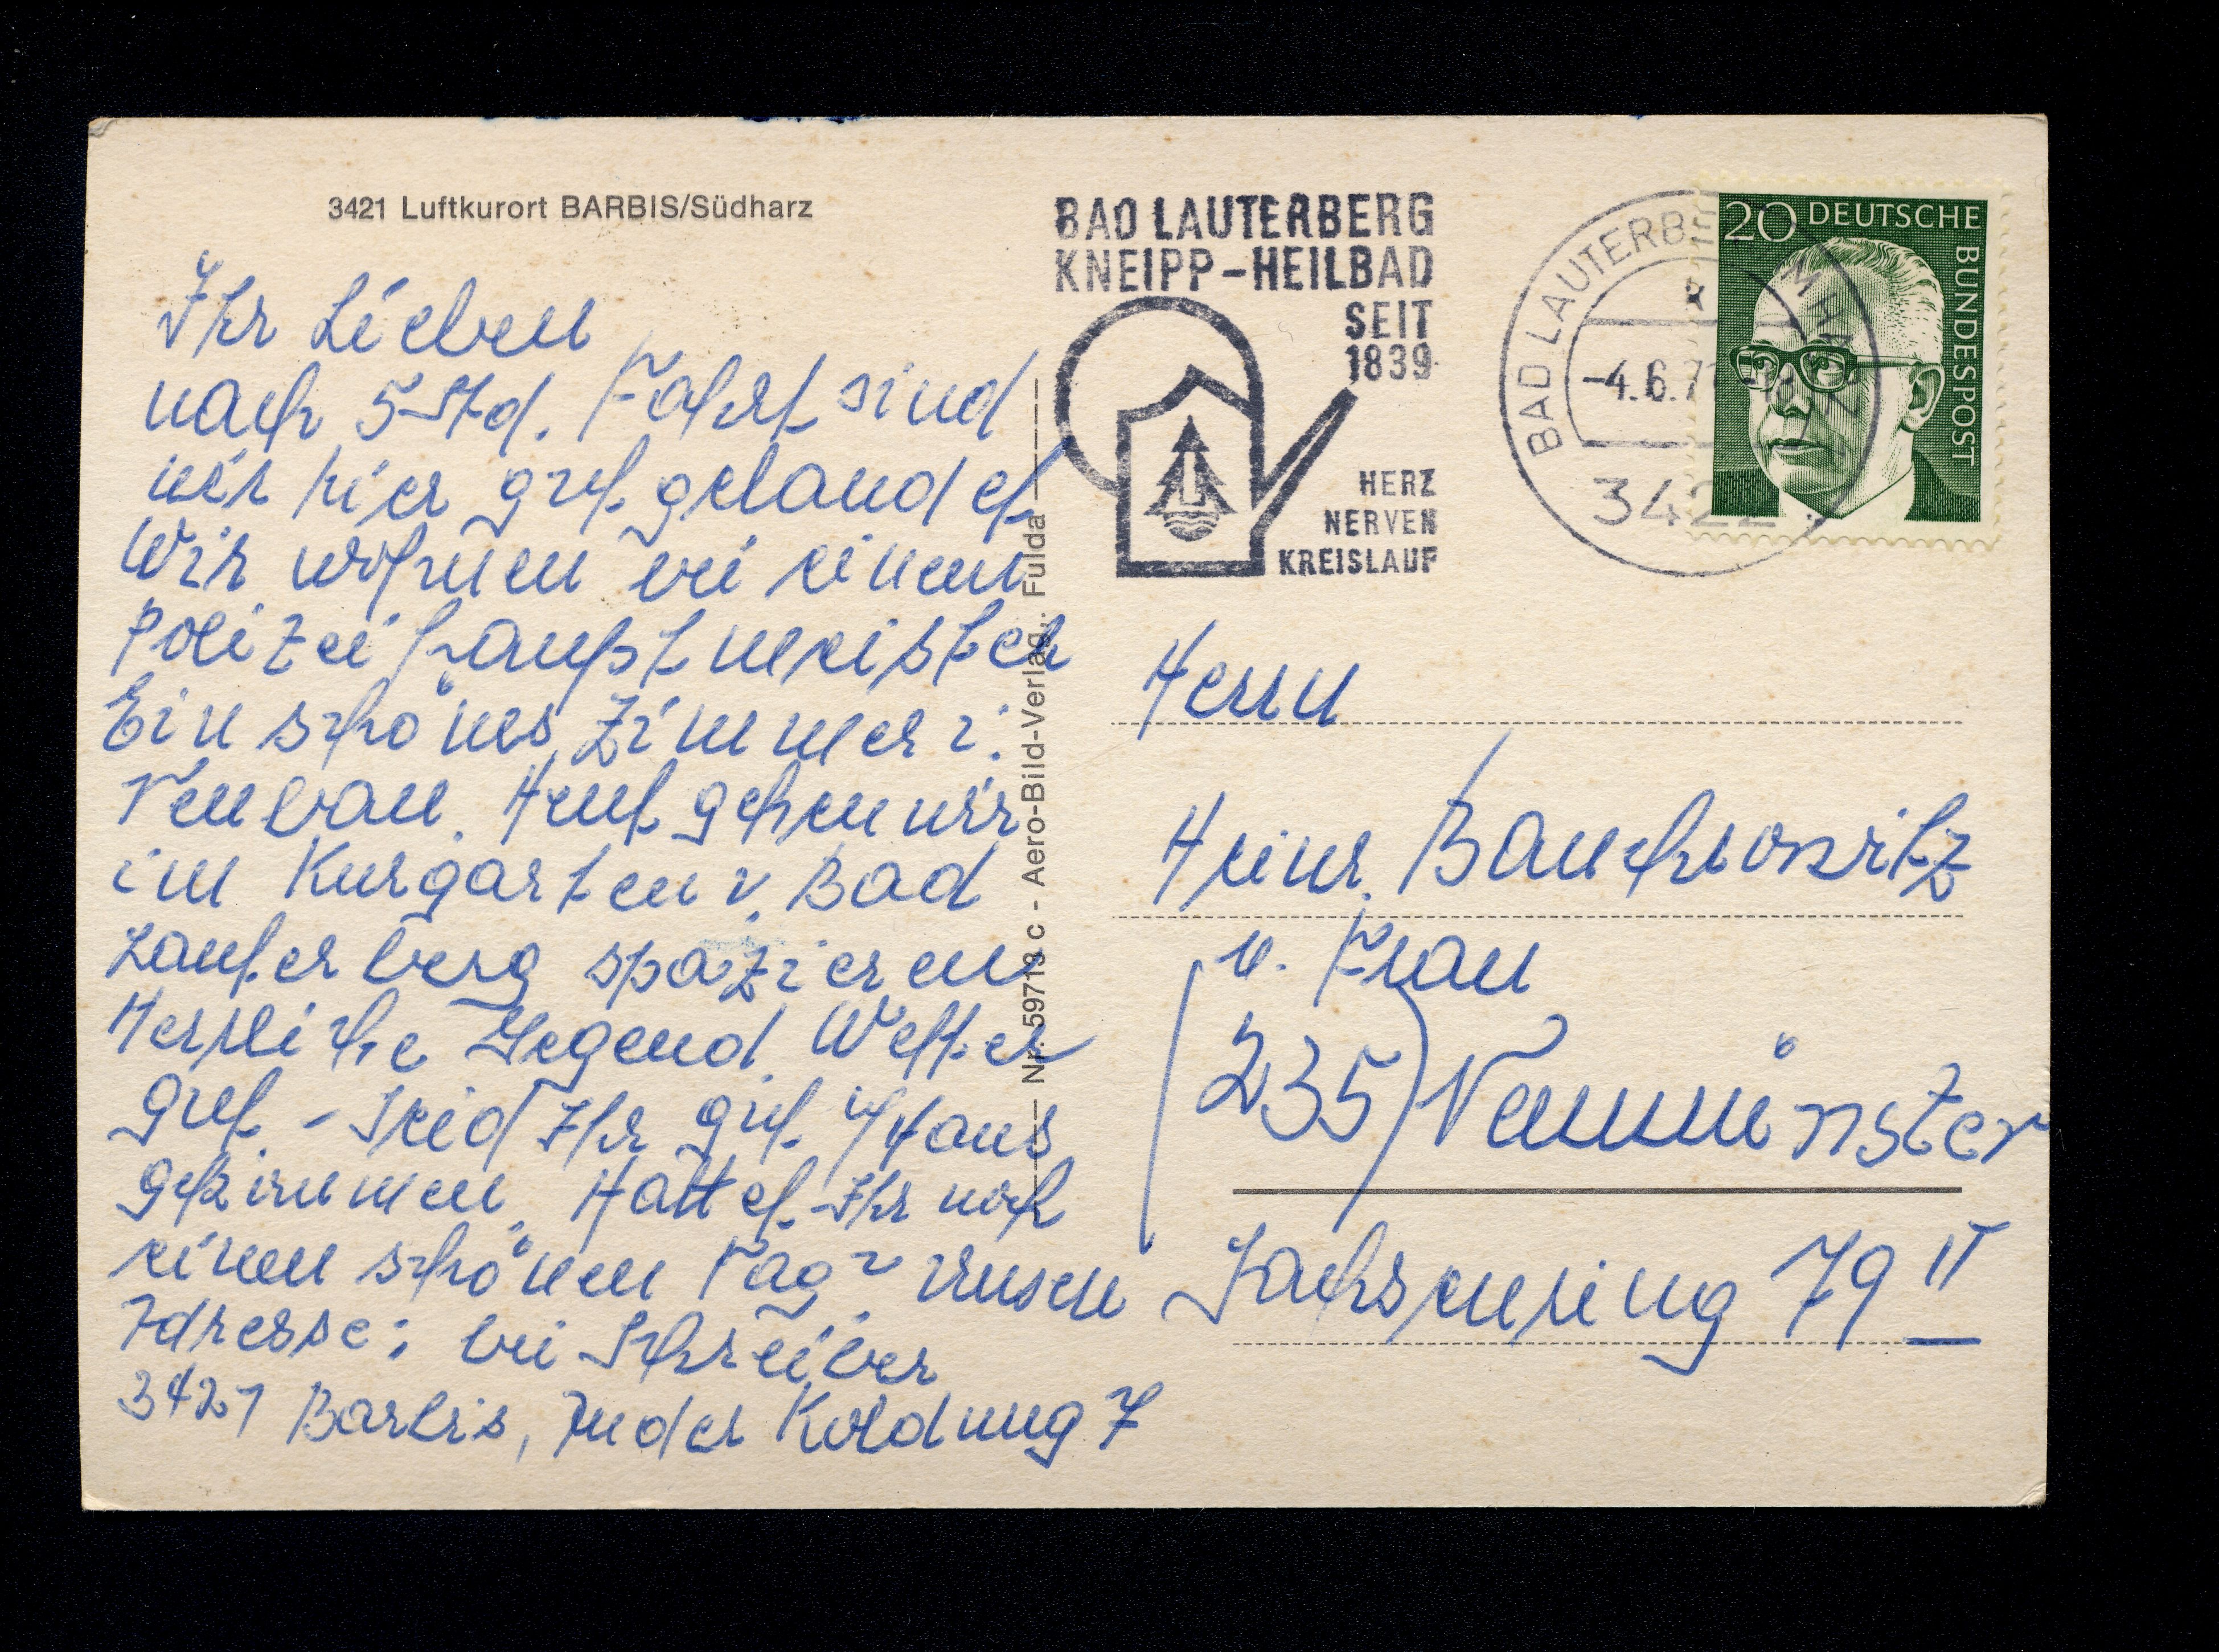 3421 Luftkurort BARBIS/Südharz
Ihr Lieben
nach 5 Std. Fahrt sind
wir hier gut gelandet
Wir wohnen bei einem
Polizeihauptmeister
Ein schönes Zimmer i.
Neubau. Heut gehen wir
im Kurgarten v. Bad
Lauterberg spazieren
Herrliche Gegend. Wetter
gut. – Seid Ihr gut n/Haus
gekommen. Hattet Ihr noch
einen schönen Tag? Unsere
Adresse: bei Schreiber
3421 Barbis, In der Koldung 7
Nr. 59713 c - Aero-Bild-Verlag, Fulda
BAD LAUTERBERG
KNEIPP-HEILBAD
SEIT
1839
HERZ
NERVEN
KREISLAUF
BAD LAUTERBERG IM HARZ
-4.6.7
3422
20 DEUTSCHE BUNDESPOST
Herrn
Heinr. Bauchrowitz
u. Frau
(235) Neumünster
Sachsenring 79 II